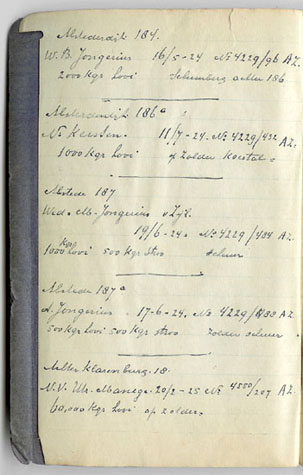 Abstederdijk 184.
W. B. Jongerius 16/5-24 No 4229/96 A.Z.
2000 Kgs hooi Schuurberg achter 186
Abstederdijk 186a
No 11/7-24. No 4229/432 A.Z.
1000 Kgs hooi op zolder
Abstede 187
Wed. Jongerius v Zijl.
19/6-24. No 4229/484 A.Z.
1000 Kgs hooi 500 kgs stroo schuur
Abstede 187a
d. Jongerius. 17-6-24. No 4229/488 A.Z.
500 kgs hooi 500 kgs stroo zolder schuur
Achter Klarenburg. 18.
N.V. Utr. Manege. 20/2-25 No 4550/207 A.Z.
60,000 kgs hooi op zolder.